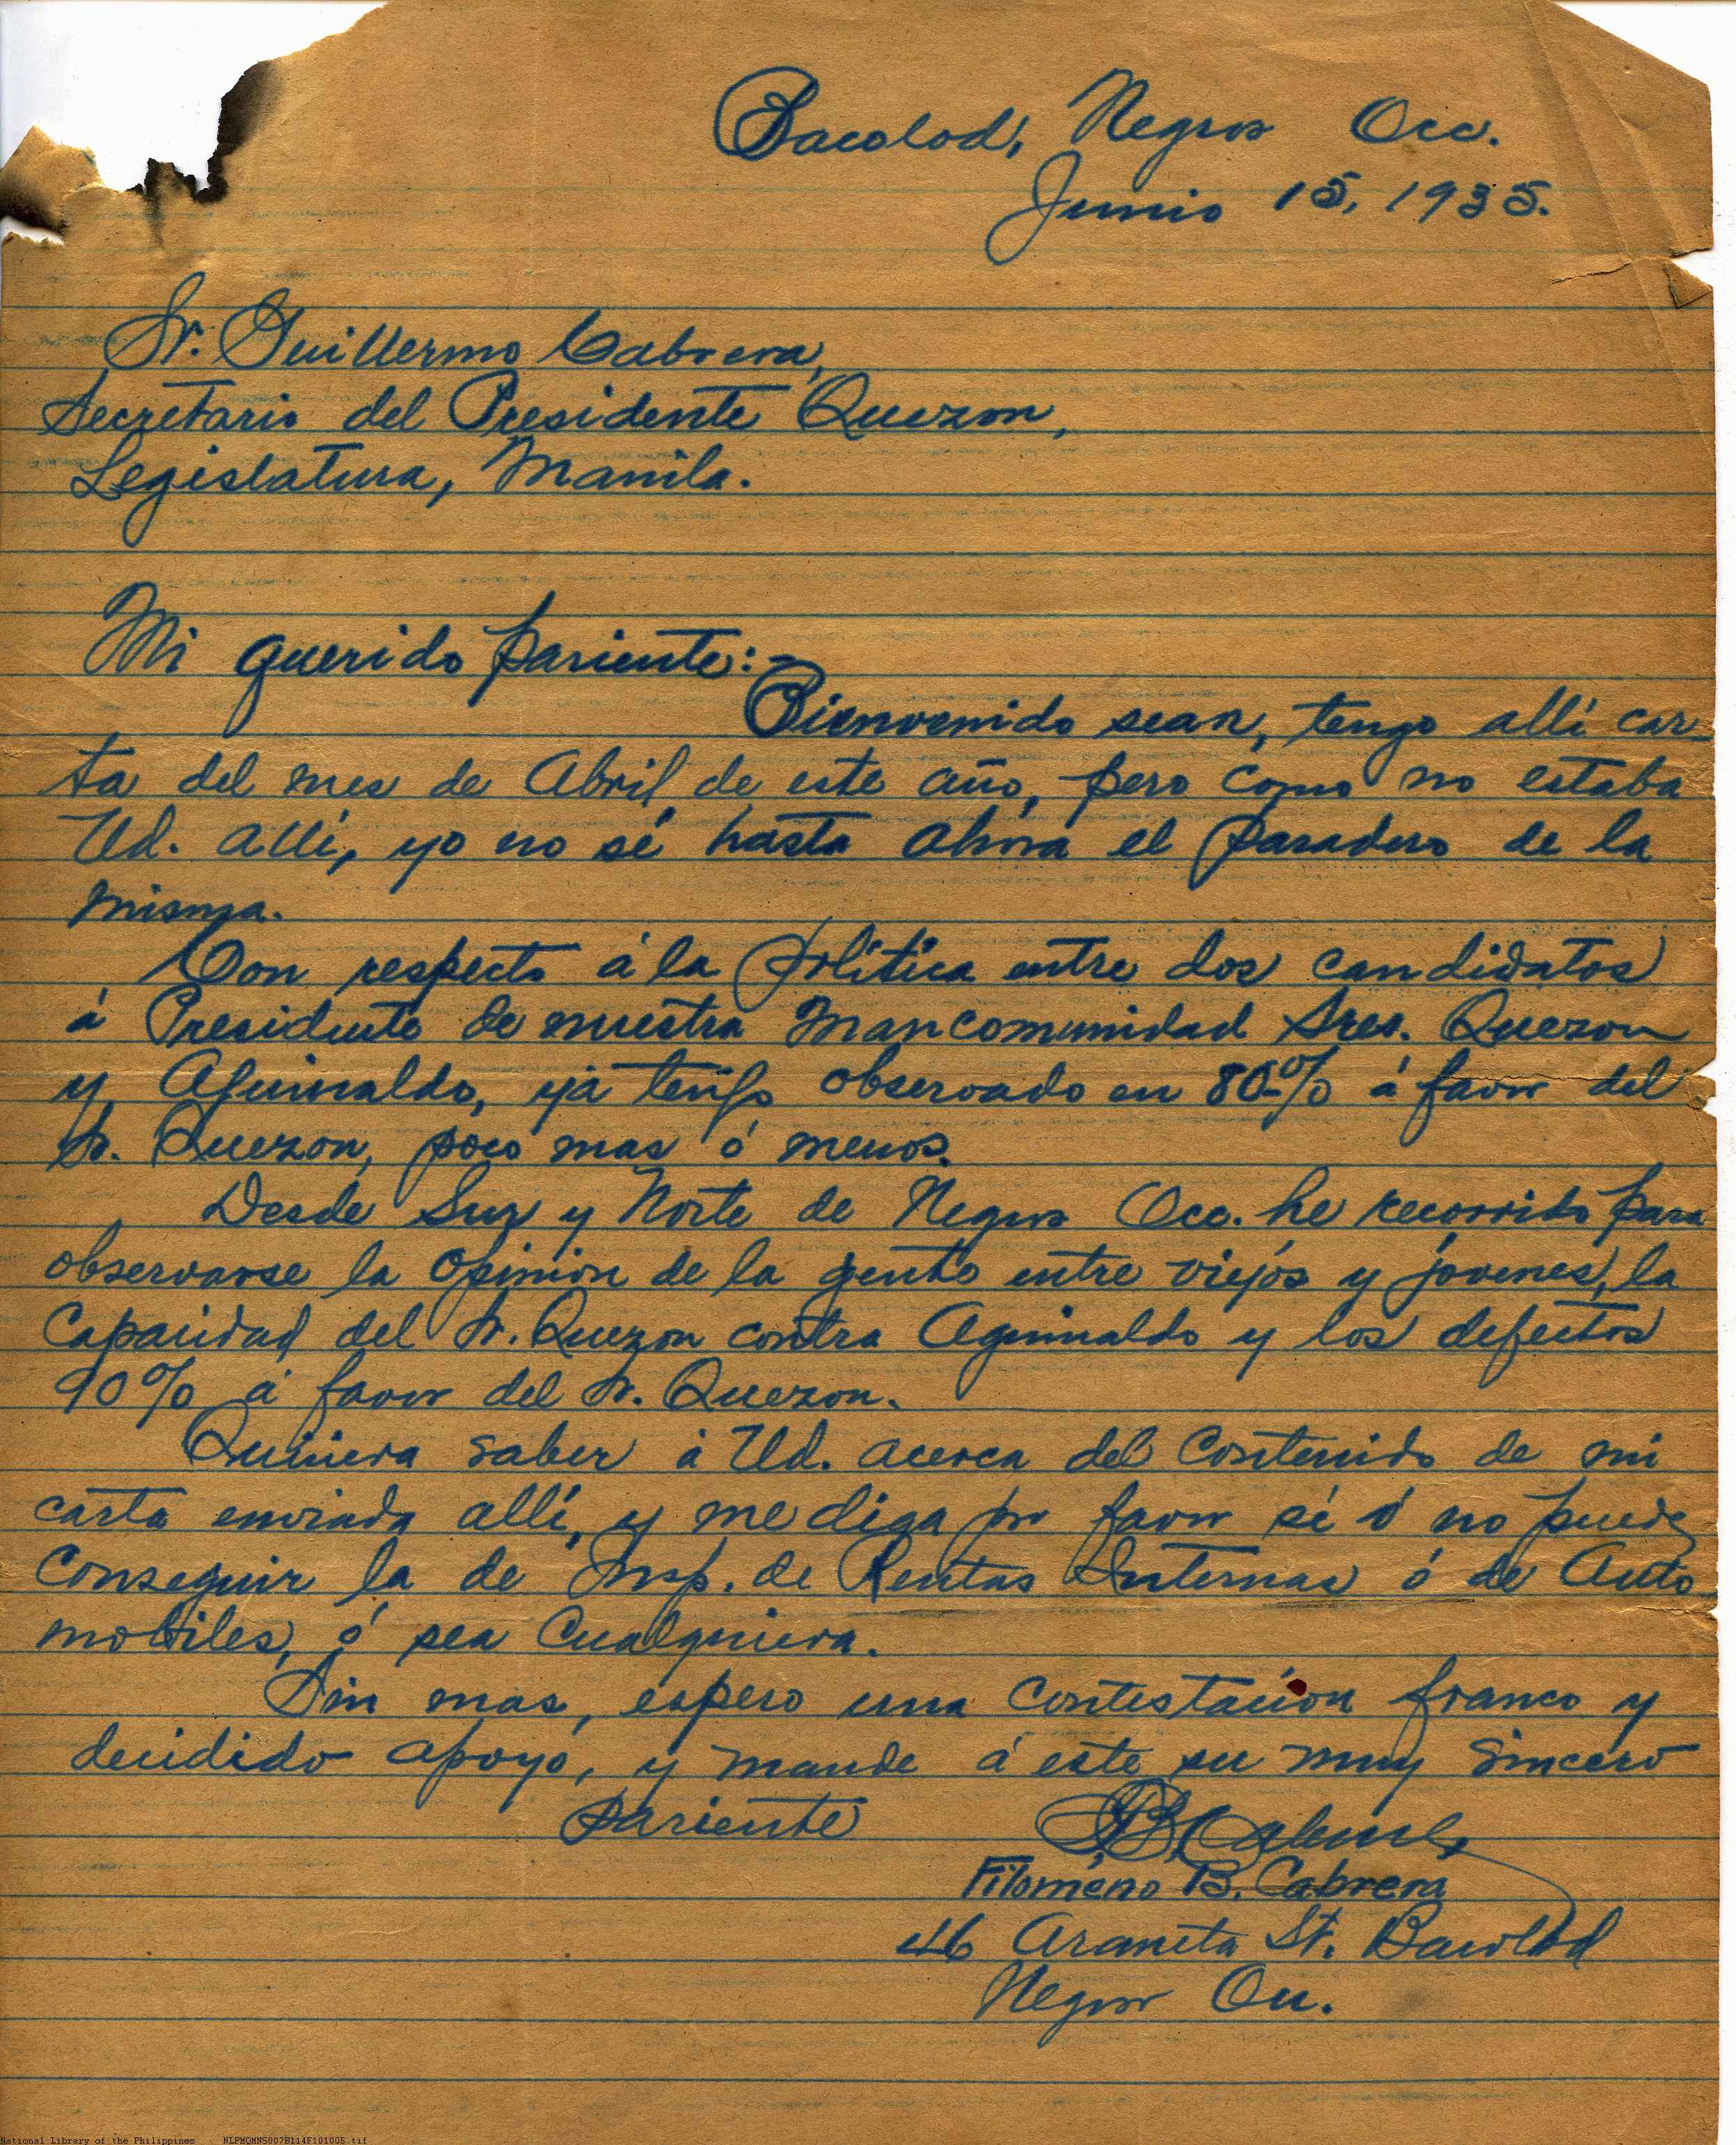 Bacolod, Negros Occ.
Junio 15, 1935.
Sr. Guillermo Cabrera,
Secretario del Presidente Quezon,
Legislatura, Manila.
Mi querido pariente:-
Bienvenido sean, tengo allí car-
ta del mes de Abril de este año, pero como no estaba
Ud. allí, yo no sé hasta ahora el paradero de la
misma.
Con respecto á la política entre dos candidatos
á Presidente de nuestra Mancomunidad Sres. Quezon
y Aguinaldo, ya tengo observado en 80% á favor del
Sr. Quezon, poco mas ó menos.
Desde Sur y Norte de Negros Occ. he recorrido para
observarse la opinion de la gente entre viejos y jovenes, la
capacidad del Sr. Quezon contra Aguinaldo y los defectos
90% á favor del Sr. Quezon.
Quisiera saber á Ud. acerca del contenido de mi
carta enviada allí, y me diga por favor si ó no puede
conseguir la de Insp. de Rentas Internas ó de Auto-
mobiles, ó sea cualquiera.
Sin mas, espero una contestacion franco y
decidido apoyo, y mande á este su muy sincero
pariente
FBCabrera
Filomeno B. Cabrera
46 Araneta St. Bacolod
Negros Occ.
National Library of the Philippines NLPMQMNS007B114F101005.tif